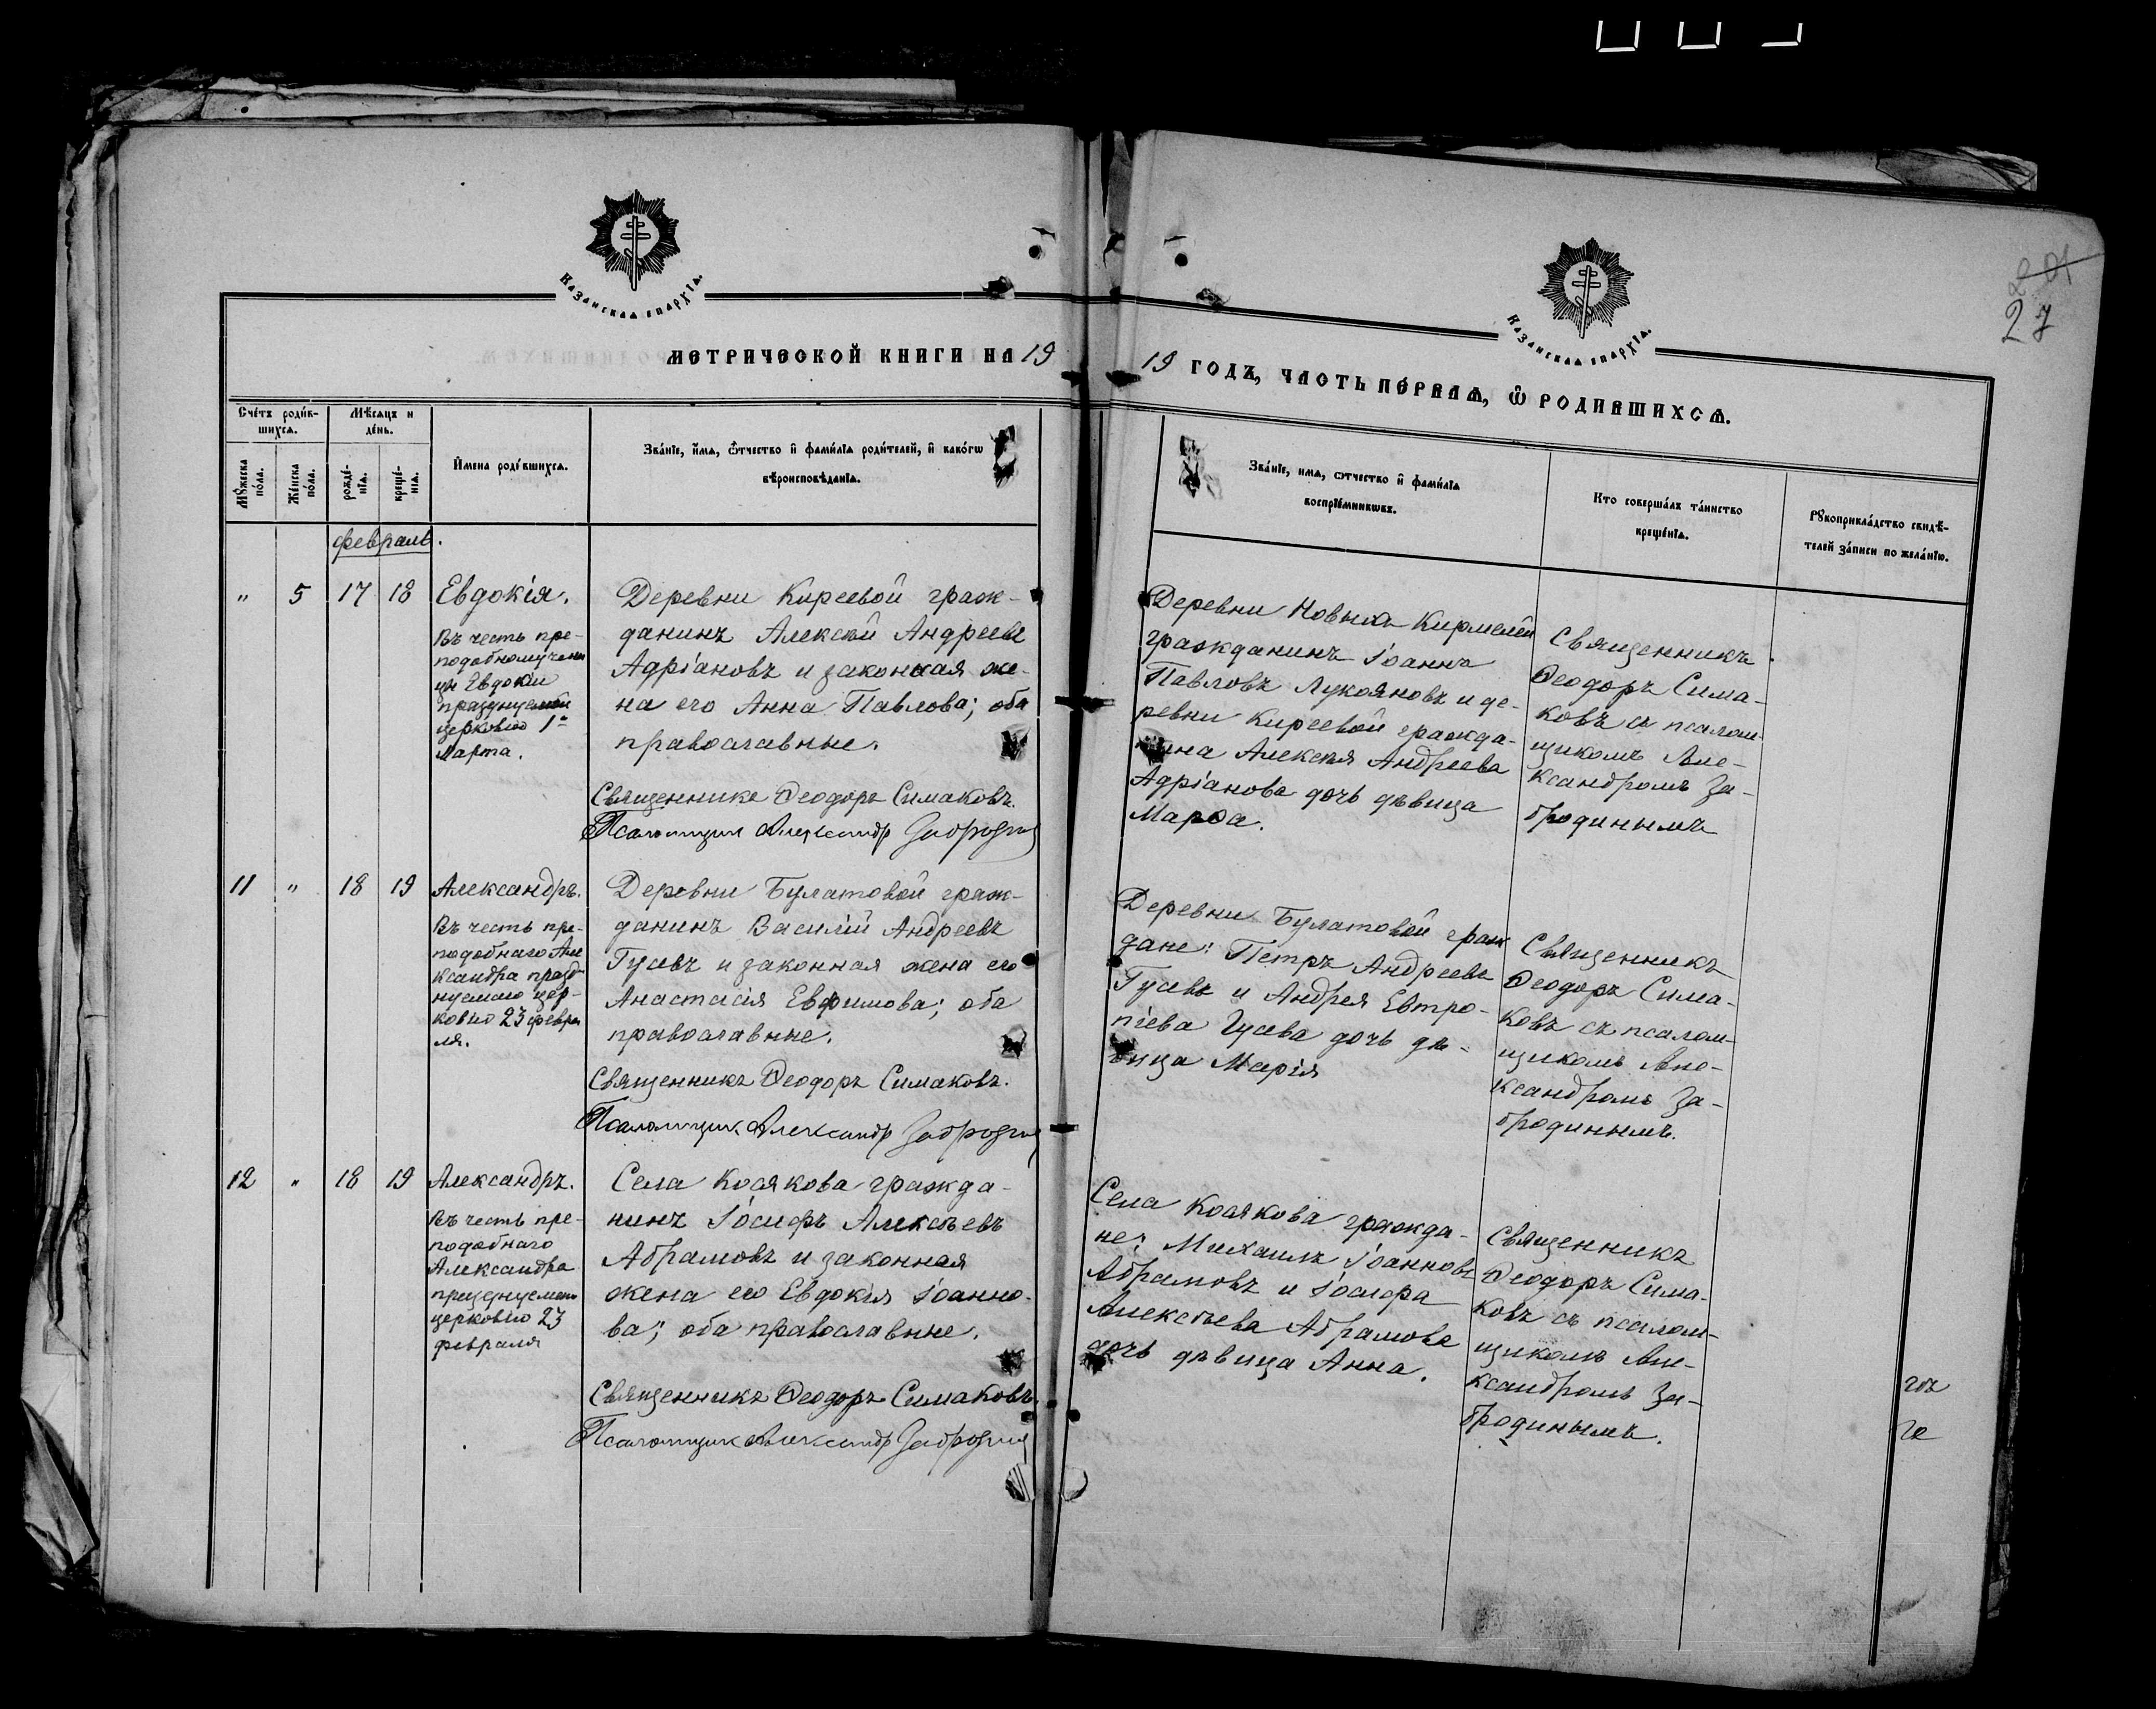 Казанская епархїа.
Казанская епархїа.
201
27
МЕТРИЧЕСКОЙ КНИГИ НА 19
19 ГОДЪ, ЧАСТЬ ПЕ́РВАѦ, Ѽ РОДИВШИХСѦ.
Сче́тъ роди́в-
шихсѧ.
Мѣ́сѧцъ и
де́нь.
Мꙋ́жеска
по́ла.
Же́нска
по́ла.
рожде́-
нїѧ.
креще́-
нїѧ.
И҆мена роди́вшихсѧ.
Зва́нїе, и҆́мѧ, ѻ҆́тчество и҆ фами́лїѧ роди́телей, и҆ како́гѡ
вѣроисповѣ́данїѧ.
Зва́нїе, имѧ, ѻтчество и҆ фами́лїѧ
воспрїе́мникѡвъ.
Кто соверша́лъ та́инство
креще́нїѧ.
Рꙋкоприкла́дство свидѣ́-
телей за́писи по жела́нїю.
февраль.
" 5 17 18 Евдокія.
Въ честь пре-
подобномучени
цы Евдокіи
празднуемой
церковію 1го
Марта.
Деревни Киреевой граж-
данинъ Алексѣй Андреевъ
Адріановъ и законная же-
на его Анна Павлова; оба
православные.
Священникъ Ѳеодоръ Симаковъ.
Псаломщик Александр Забродин
Деревни Новыхъ Кирмелей
гражданинъ Іоаннъ
Павловъ Лукояновъ и де-
ревни Киреевой гражда-
нина Алексѣя Андреева
Адріанова дочь дѣвица
Марѳа.
Священникъ
Ѳеодоръ Сима-
ковъ съ псалом-
щикомъ Але-
ксандромъ За-
бродинымъ
11 " 18 19 Александръ.
Въ честь пре-
подобнаго Але
ксандра празд-
нуемаго цер-
ковію 23 февра
ля.
Деревни Булатовой граж-
данинъ Василій Андреевъ
Гусевъ и законная жена его
Анастасія Евфимова; оба
православные.
Священникъ Ѳеодоръ Симаковъ.
Псаломщик Александр Забродин
Деревни Булатовой граж
дане: Петръ Андреевъ
Гусевъ и Андрея Евтро-
піева Гусева дочь дѣ-
вица Марія
Священникъ
Ѳеодоръ Сима-
ковъ съ псалом-
щикомъ Але-
ксандромъ За-
бродинымъ.
12 " 18 19 Александръ.
Въ честь пре-
подобнаго
Александра
празднуемаго
церковію 23
февраля
Села Косякова гражда-
нинъ Іосифъ Алексѣевъ
Абрамовъ и законная
жена его Евдокія Іоанно-
ва; оба православные.
Священникъ Ѳеодоръ Симаковъ.
Псаломщик Александр Забродин
Села Косякова гражда-
не: Михаилъ Іоанновъ
Абрамовъ и Іосифа
Алексѣева Абрамова
дочь дѣвица Анна.
Священникъ
Ѳеодоръ Сима-
ковъ съ псалом-
щикомъ Але-
ксандромъ За-
бродинымъ.